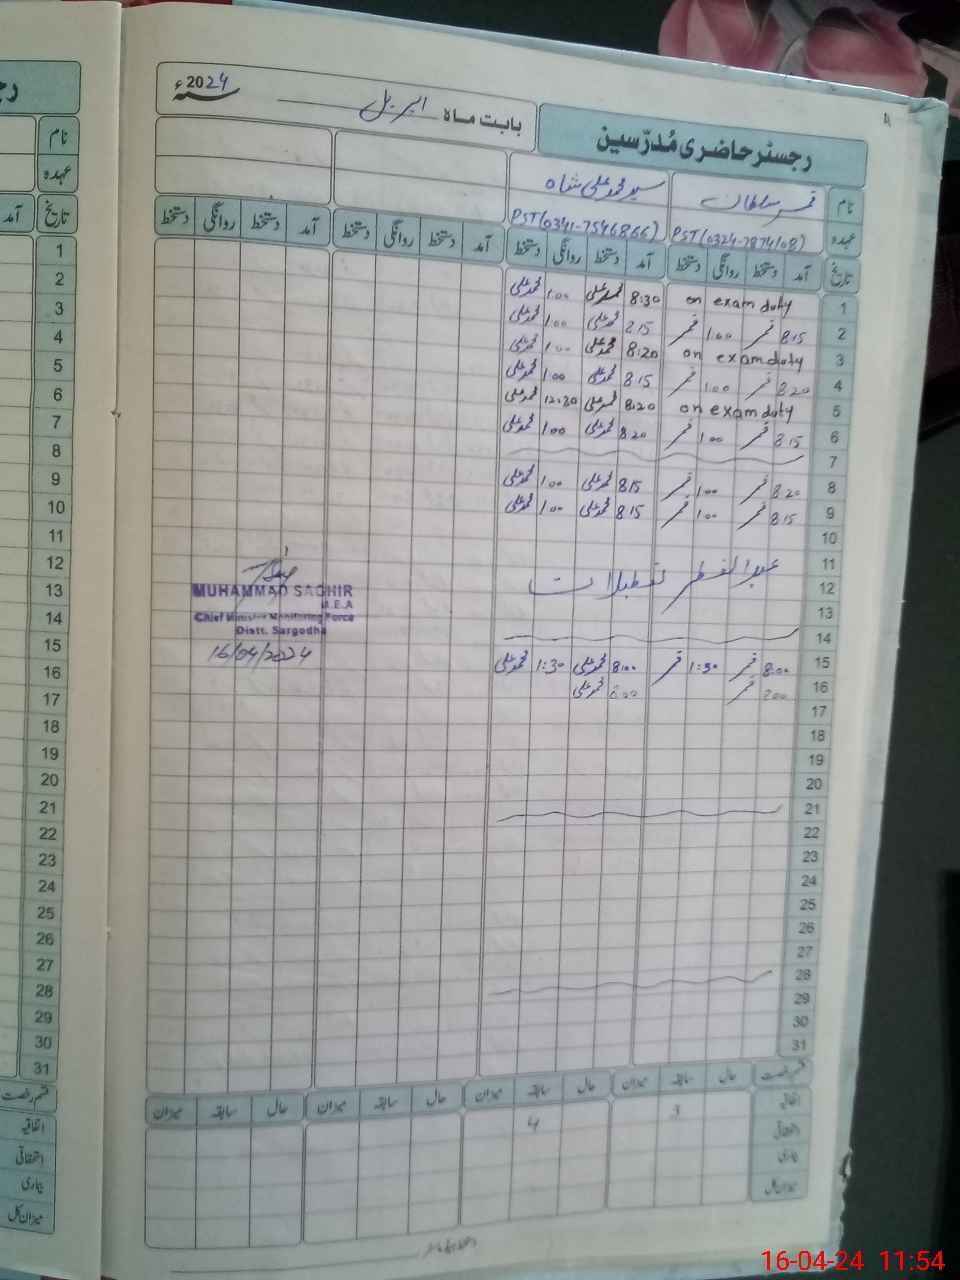 رجسٹر حاضری مُدرّسین
بابت ماہ اپریل 2024ء
نام قمر سلطان سید محمد علی شاہ
عہدہ PST(0324-7874108) PST(0341-7546866)
تاریخ آمد دستخط روانگی دستخط آمد دستخط روانگی دستخط آمد دستخط روانگی دستخط آمد دستخط روانگی دستخط
1 on exam duty 8:30 محمد علی 1:00 محمد علی
2 8:15 قمر 1:00 قمر محمد علی 1:00 محمد علی
3 on exam duty 8:20 محمد علی 1:00 محمد علی
4 8:20 قمر 1:00 قمر 8:15 محمد علی 1:00 محمد علی
5 on exam duty 8:20 محمد علی 12:30 محمد علی
6 8:15 قمر 1:00 قمر 8:20 محمد علی 1:00 محمد علی
7
8 8:20 قمر 1:00 قمر 8:15 محمد علی 1:00 محمد علی
9 8:15 قمر 1:00 قمر 8:15 محمد علی 1:00 محمد علی
10
11
12 عید الفطر تعطیلات
13
14
15 8:00 قمر 1:30 قمر 8:00 محمد علی 1:30 محمد علی
16 قمر 8:00 محمد علی
17
18
19
20
21
22
23
24
25
26
27
28
29
30
31
MUHAMMAD SAGHIR
M.E.A
Chief Minister Monitoring Force
Distt. Sargodha
16/04/2024
قسم رخصت حال سابقہ میزان حال سابقہ میزان حال سابقہ میزان حال سابقہ میزان
اتفاقیہ 3 4
استحقاقی
بیماری
میزان کل
نام
عہدہ
تاریخ آمد
1
2
3
4
5
6
7
8
9
10
11
12
13
14
15
16
17
18
19
20
21
22
23
24
25
26
27
28
29
30
31
قسم رخصت
اتفاقیہ
استحقاقی
بیماری
میزان کل
16-04-24 11:54